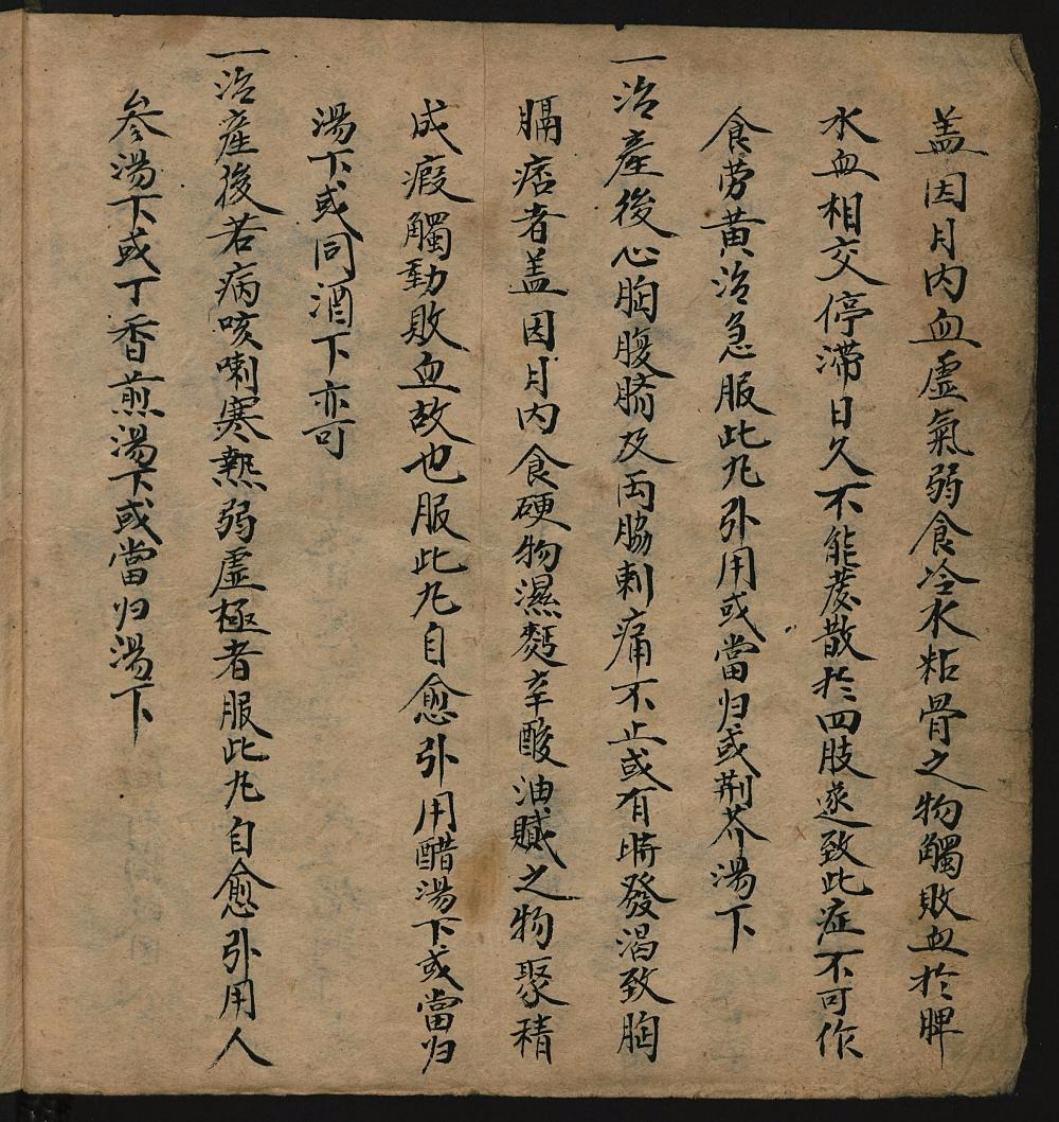 盖因月内血虛氣弱食冷水粘骨之物觸敗血扵脾
水血相交停滯日久不能發散扵四肢遂致此症不可作
食劳黄治急服此丸引用或當归或荆芥湯下
一治產後心胸腹脐及両脇刺痛不止或有時發渴致胸
膈痞者盖因月内食硬物濕麪辛酸油膩之物聚積
成瘕觸動敗血故也服此丸自愈引用醋湯下或當归
湯下或同酒下亦可
一治產後若病咳喇寒熱弱虛極者服此丸自愈引用人
参湯下或丁香煎湯下或當归湯下